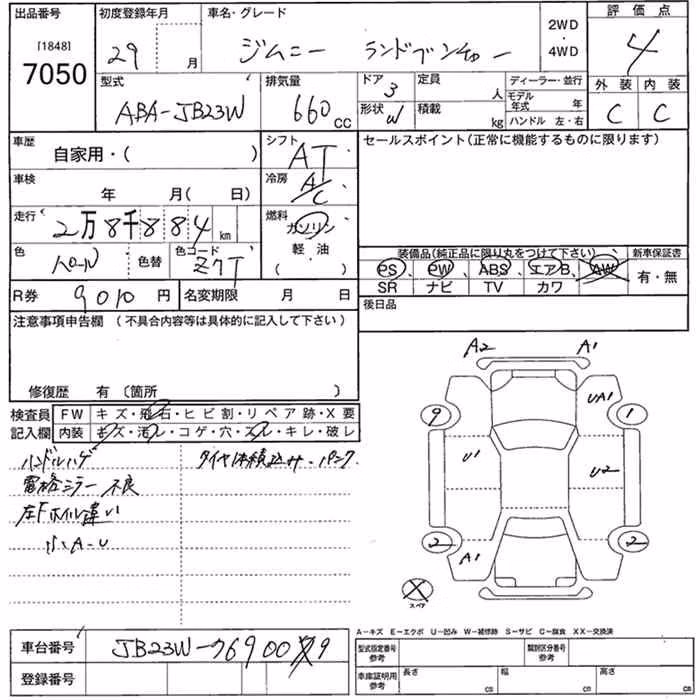 出品番号 初度登録年月 車名・グレード 2WD・4WD 評価点
[1848] 7050 29 月 ジムニー ランドベンチャー 4
型式 排気量 ドア 3 定員 人 ディーラー・並行 外装 内装
ABA-JB23W 660 cc 形状 W 積載 kg モデル年式 年 ハンドル 左・右 C C
車歴 自家用・( ) シフト AT セールスポイント(正常に機能するものに限ります)
車検 年 月( 日) 冷房 A/C
走行 2万8千884 km 燃料 ガソリン
軽・油
( )
色 パール 色替 色コード Z7T
装備品(純正品に限り丸をつけて下さい) 新車保証書
PS PW ABS エアB AW 有・無
SR ナビ TV カワ
R券 9010 円 名変期限 月 日 後日品
注意事項申告欄 (不具合内容等は具体的に記入して下さい)
修復歴 有 〔箇所 〕
検査員 FW キズ・飛石・ヒビ割・リペア跡・X要
記入欄 内装 キズ・汚レ・コゲ・穴・スレ・キレ・破レ
ハンドルハゲ タイヤ体積込み・パンク
電格ミラー不良
左Fホイル違い
小・A-U
A2 A1
UA1
9 1
U1 U2
2 2
A1
スペア
A-キズ E-エクボ U-凹み W-補修跡 S-サビ C-腐食 XX-交換済
車台番号 JB23W-769009
登録番号
型式指定番号 参考 類別区分番号 参考
車庫証明用 参考 長さ cm 幅 cm 高さ cm